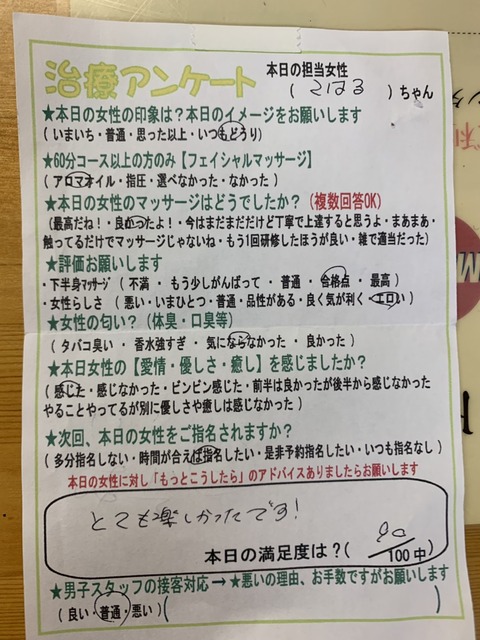 治療アンケート
本日の担当女性
( こはる )ちゃん
★本日の女性の印象は？本日のイメージをお願いします
( いまいち・普通・思った以上・いつもどうり)
★60分コース以上の方のみ【フェイシャルマッサージ】
( アロマオイル・指圧・選べなかった・なかった )
★本日の女性のマッサージはどうでしたか？(複数回答OK)
(最高だね！・良かったよ！・今はまだまだだけど丁寧で上達すると思うよ・まあまあ・
触ってるだけでマッサージじゃないね・もう1回研修したほうが良い・雑で適当だった)
★評価お願いします
・下半身マッサージ ( 不満 ・ もう少しがんばって ・ 普通 ・ 合格点 ・ 最高 )
・女性らしさ ( 悪い・いまひとつ・普通・品性がある・良く気が利く・エロい )
★女性の匂い？(体臭・口臭等)
( タバコ臭い ・ 香水強すぎ ・ 気にならなかった ・ 良かった )
★本日女性の【愛情・優しさ・癒し】を感じましたか？
( 感じた・感じなかった・ビンビン感じた・前半は良かったが後半から感じなかった
やることやってるが別に優しさや癒しは感じなかった )
★次回、本日の女性をご指名されますか？
( 多分指名しない・時間が合えば指名したい・是非予約指名したい・いつも指名なし )
本日の女性に対し「もっとこうしたら」のアドバイスありましたらお願いします
とても楽しかったです！
本日の満足度は？( 90/100中 )
★男子スタッフの接客対応→★悪いの理由、お手数ですがお願いします
( 良い・普通・悪い ) ( )